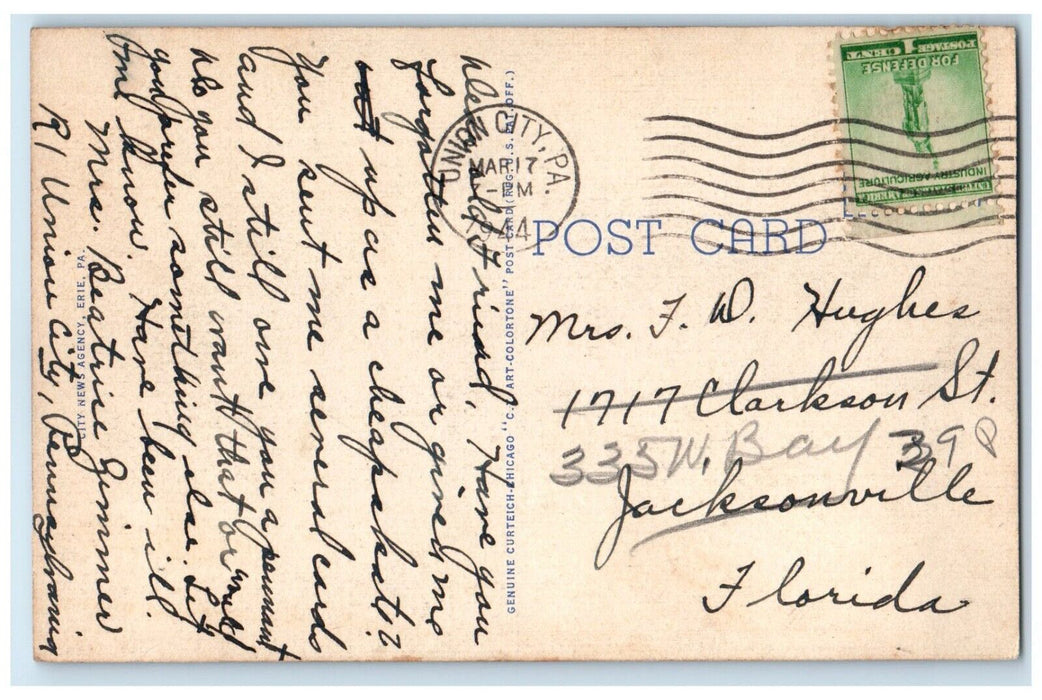 Dear Friend, Have you
forgotten me or given me
out up as a cheapskate?
You sent me several cards
and I still owe you a pennant
Do you still want that or would
you prefer something else. Let
me know. Have been ill.
Mrs. Beatrice Zimmer
R1 Union City, Pennsylvania
CITY NEWS AGENCY, ERIE, PA.
GENUINE CURTEICH-CHICAGO "C.T. ART-COLORTONE" POST CARD (REG. U.S. PAT. OFF.)
UNION CITY, PA.
MAR 17
1944
POSTAGE 1 CENT
FOR DEFENSE
INDUSTRY AGRICULTURE
UNITED STATES OF AMERICA
POST CARD
Mrs. F. W. Hughes
1717 Clarkson St.
335 W. Bay 39
Jacksonville
Florida